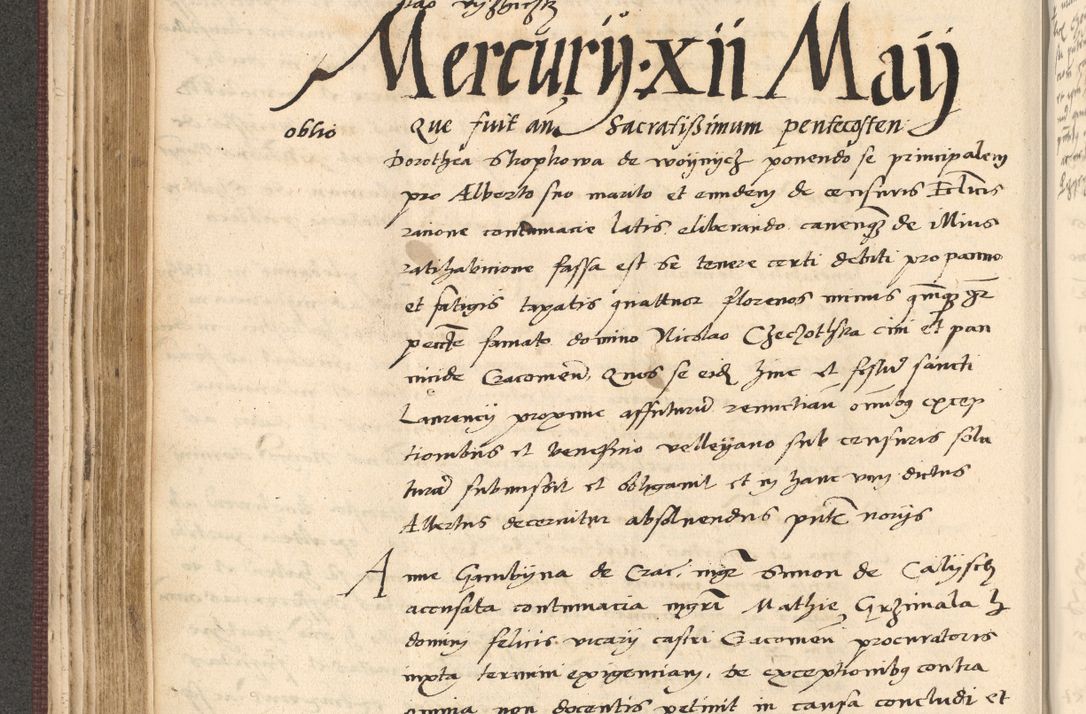 Mercurij · xii Maij
oblio Que fuit an Sacratißimum pentecosten
Dorothea Stropkowa de woÿnycz ponendo se principalem
pro Alberto suo marito et eundem de censuris Eclicis
racione contumacie latis eliberando cauenque de illius
ratihabicione fassa est se tenere certi debiti pro panno
et fatigis taxatis quattuor florenos minus quinque gr
pecte famato domino Nicolao Czeczothka ciui et pan
nicide Cracouien Quos se eid hinc et festum sancti
Laurencij proxime affuturum renunctian omnibus excep
tionibus et beneficio velleyano sub censuris solu
turam submissit et obligauit et in hanc vim dictus
Albertus decernitur absoluendus pnte norijs
Anne Gambÿna de Crac. mgr Simon de Calÿsch
accusata contumacia mgri Mathie Grzimala
domini felicis vicarij castri Cracouien procuratoris
iuxta termini exigenciam, de exceptionibus contra
omnia non docentis petiuit in causa concludi et